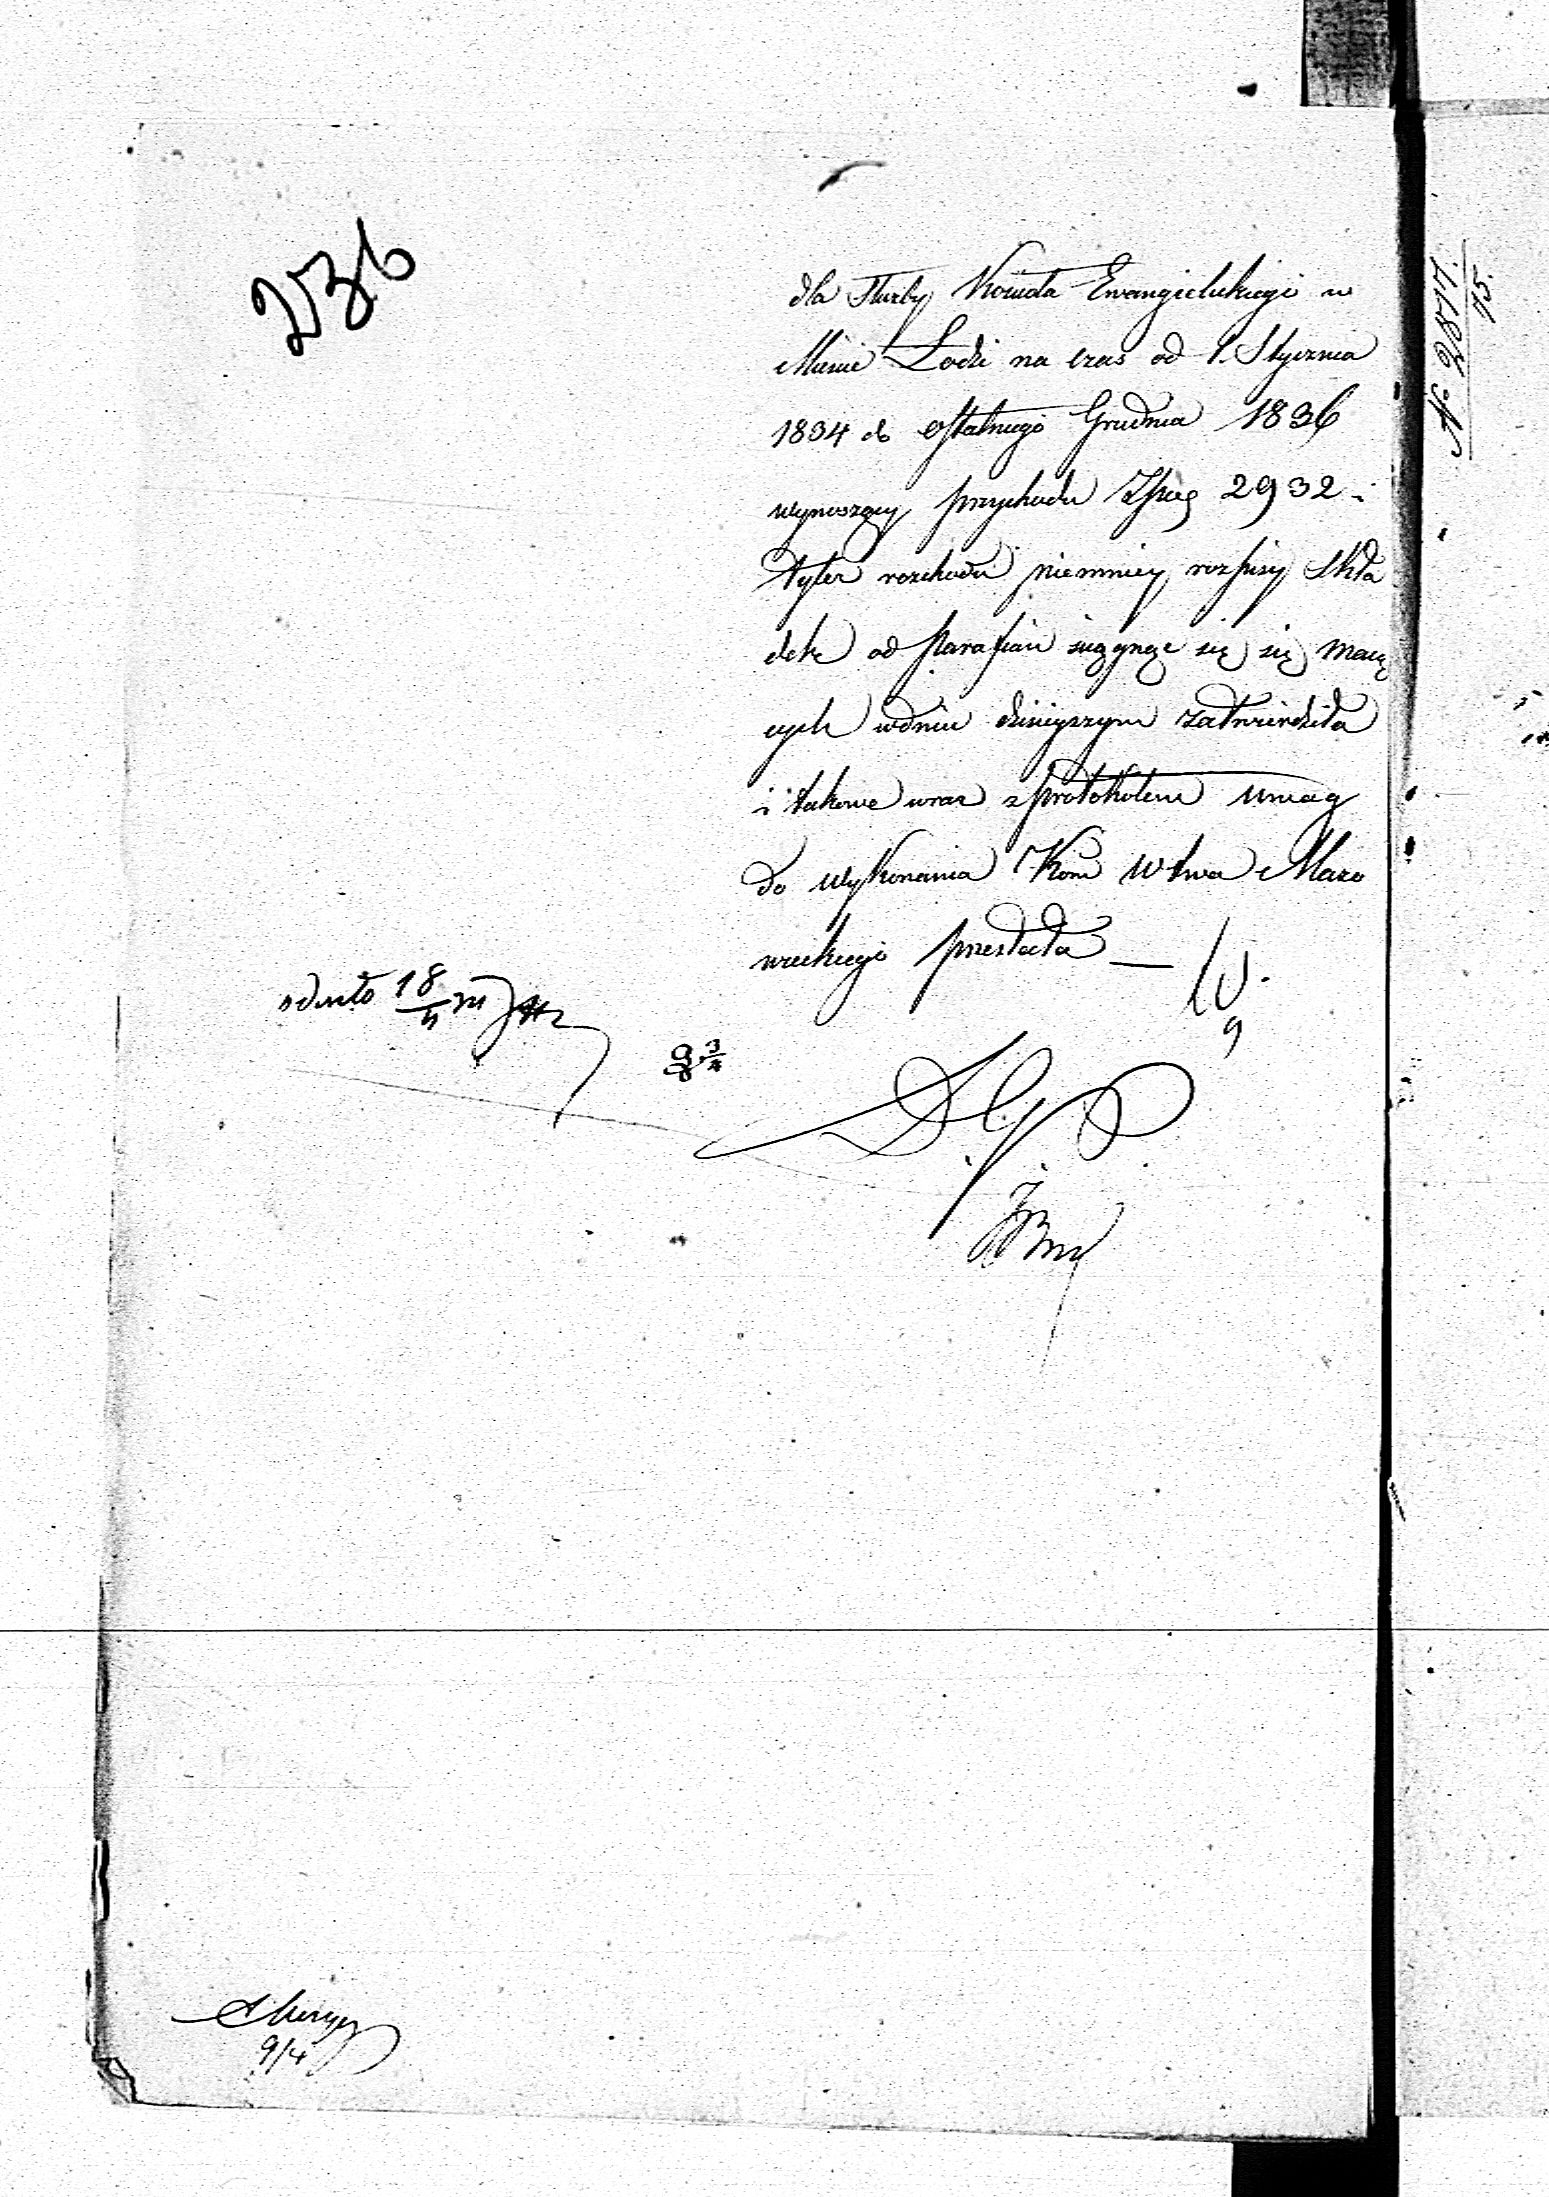 236
dla Służby Kościoła Ewangielickiego w
Mieście Łodzi na czas od 1. Stycznia
1834 do ostatniego Grudnia 1836
wynoszący przychodu 2932 i
tyleż rozchodu niemniey rozpisy Skła
dek od Parafian ściągnąć się się maią
cych w dniu dzisieyszym zatwierdziła
i takowe wraz z protokołem uwag
do wykonania Kom Wtwa Mazo
wieckiego przesłała —
odesło 18/4
9/4
No 2817.
15.